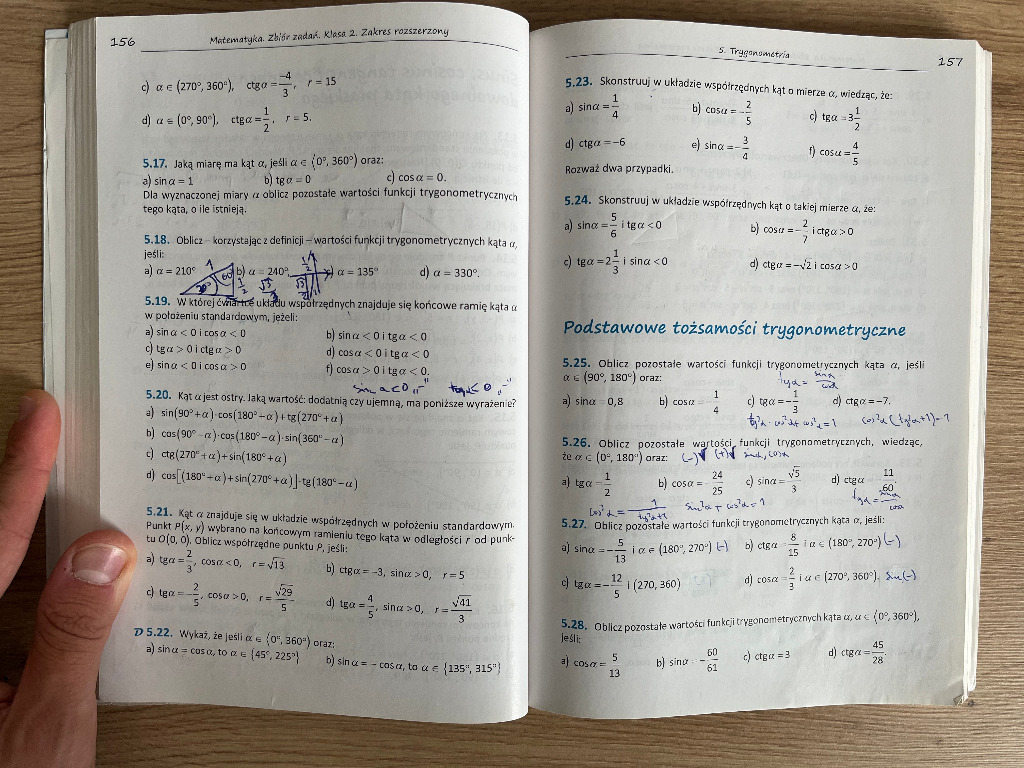 156
Matematyka. Zbiór zadań. Klasa 2. Zakres rozszerzony
c) α ∈ (270°, 360°), ctgα = -4/3, r = 15
d) α ∈ (0°, 90°), ctgα = 1/2, r = 5.
5.17. Jaką miarę ma kąt α, jeśli α ∈ ⟨0°, 360°) oraz:
a) sin α = 1 b) tg α = 0 c) cos α = 0.
Dla wyznaczonej miary α oblicz pozostałe wartości funkcji trygonometrycznych
tego kąta, o ile istnieją.
5.18. Oblicz – korzystając z definicji – wartości funkcji trygonometrycznych kąta α,
jeśli:
a) α = 210° b) α = 240° c) α = 135° d) α = 330°.
5.19. W której ćwiartce układu współrzędnych znajduje się końcowe ramię kąta α
w położeniu standardowym, jeżeli:
a) sin α < 0 i cos α < 0 b) sin α < 0 i tg α < 0
c) tg α > 0 i ctg α > 0 d) cos α < 0 i tg α < 0
e) sin α < 0 i cos α > 0 f) cos α > 0 i tg α < 0.
sin α < 0 „-" tg α < 0 „-"
5.20. Kąt α jest ostry. Jaką wartość: dodatnią czy ujemną, ma poniższe wyrażenie?
a) sin(90° + α) · cos(180° – α) + tg(270° + α)
b) cos(90° – α) · cos(180° – α) · sin(360° – α)
c) ctg(270° + α) + sin(180° + α)
d) cos[(180° + α) + sin(270° + α)] · tg(180° – α)
5.21. Kąt α znajduje się w układzie współrzędnych w położeniu standardowym.
Punkt P(x, y) wybrano na końcowym ramieniu tego kąta w odległości r od punk-
tu O(0, 0). Oblicz współrzędne punktu P, jeśli:
a) tg α = 2/3, cos α < 0, r = √13 b) ctg α = –3, sin α > 0, r = 5
c) tg α = –2/5, cos α > 0, r = √29/5 d) tg α = 4/5, sin α > 0, r = √41/3
D 5.22. Wykaż, że jeśli α ∈ ⟨0°, 360°) oraz:
a) sin α = cos α, to α ∈ {45°, 225°} b) sin α = – cos α, to α ∈ {135°, 315°}
5. Trygonometria
157
5.23. Skonstruuj w układzie współrzędnych kąt o mierze α, wiedząc, że:
a) sin α = 1/4 b) cos α = –2/5 c) tg α = 3 1/2
d) ctg α = –6 e) sin α = –3/4 f) cos α = 4/5
Rozważ dwa przypadki.
5.24. Skonstruuj w układzie współrzędnych kąt o takiej mierze α, że:
a) sin α = 5/6 i tg α < 0 b) cos α = –2/7 i ctg α > 0
c) tg α = 2 1/3 i sin α < 0 d) ctg α = –√2 i cos α > 0
Podstawowe tożsamości trygonometryczne
5.25. Oblicz pozostałe wartości funkcji trygonometrycznych kąta α, jeśli
α ∈ (90°, 180°) oraz: tg α = sin α/cos α
a) sin α = 0,8 b) cos α = 1/4 c) tg α = –1/3 d) ctg α = –7.
tg²α · cos²α + cos²α = 1 cos²α (tg²α + 1) = 1
5.26. Oblicz pozostałe wartości funkcji trygonometrycznych, wiedząc,
że α ∈ (0°, 180°) oraz: (-) (+) sin α, cos α
a) tg α = 1/2 b) cos α = 24/25 c) sin α = √5/3 d) ctg α = 11/60.
cos²α = 1/tg²α+1 sin²α + cos²α = 1 tg α = sin α/cos α
5.27. Oblicz pozostałe wartości funkcji trygonometrycznych kąta α, jeśli:
a) sin α = –5/13 i α ∈ (180°, 270°) (-) b) ctg α = 8/15 i α ∈ (180°, 270°) (-)
c) tg α = –12/5 i (270, 360) d) cos α = 2/3 i α ∈ (270°, 360°). sin (-)
5.28. Oblicz pozostałe wartości funkcji trygonometrycznych kąta α, α ∈ ⟨0°, 360°),
jeśli:
a) cos α = 5/13 b) sin α = –60/61 c) ctg α = 3 d) ctg α = 45/28